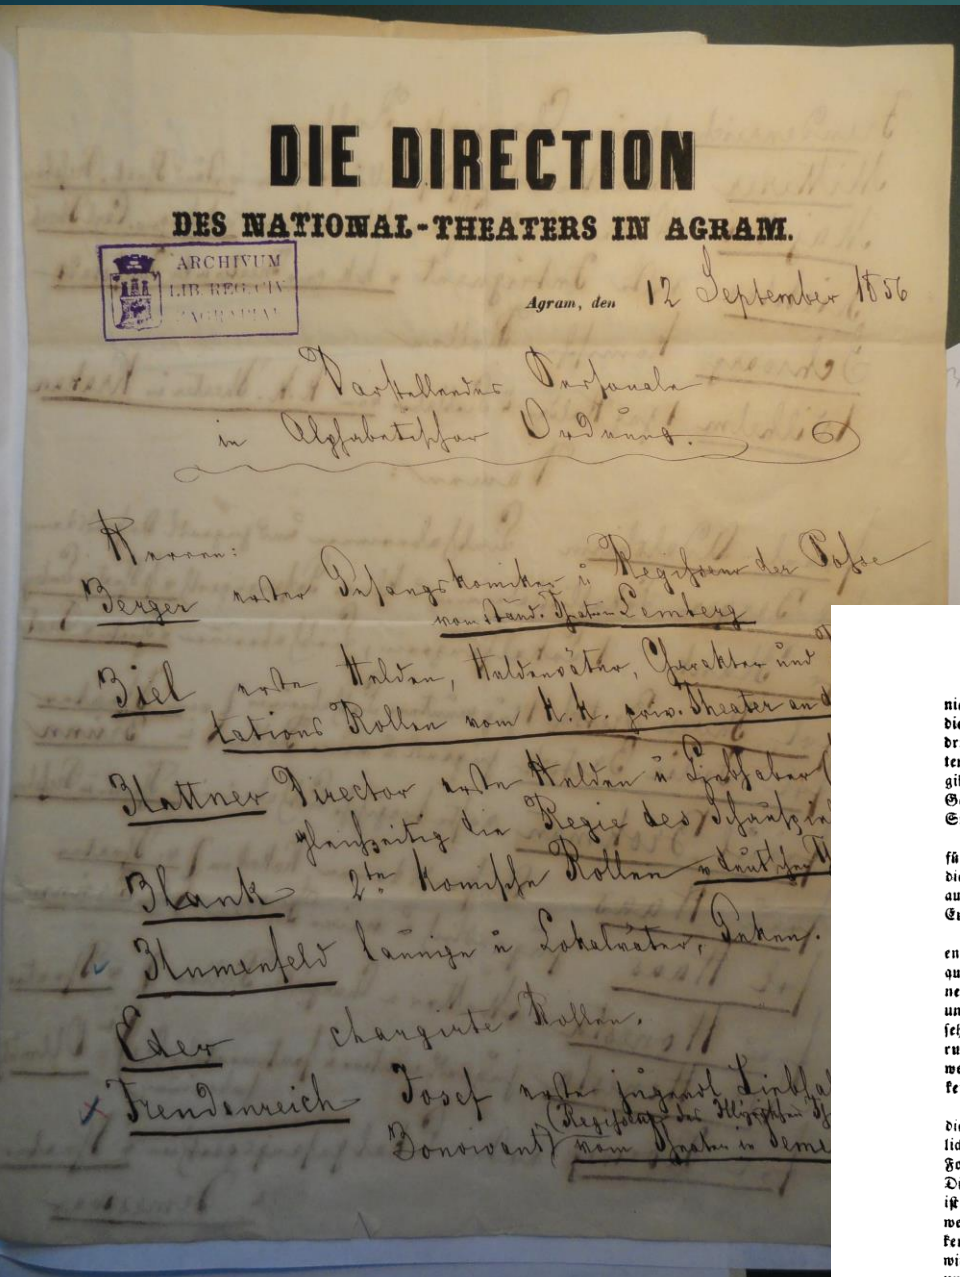 DIE DIRECTION
DES NATIONAL-THEATERS IN AGRAM.
ARCHIVUM
LIB. REG. CIV
ZAGRABIAE
Agram, den 12 September 1856
Darstellendes Personale
in Alphabetischer Ordnung.
Herren:
Berger erster Gesangskomiker u Regisseur der Posse
vom ständ. Theater Lemberg
Biel erste Helden, Heldenväter, Charakter und
tations Rollen vom K. K. priv. Theater an d
Blattner Director erste Helden u Liebhaber
gleichzeitig die Regie des Schauspiel
Blank 2te komische Rollen
Blumenfeld launige u Lokalväter, Geken.
Eder chargirte Rollen.
Freudenreich Josef erste jugendl Liebha
(Regisseur des Illyrischen Th
Bonvivant) vom Theater in Teme
nic
die
dr
ter
gil
Ge
fü
die
au
en
qu
ne
un
seh
ru
we
ke
die
lic
Fo
Di
ist
we
ker
wi